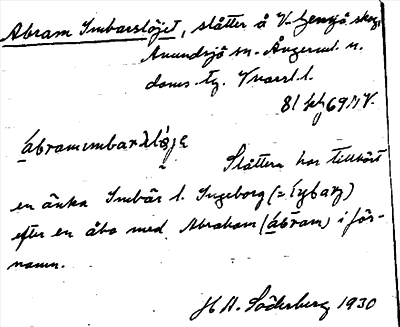 Abram Imbarslöjet, slåtter å V. Gensjö skog,
Anundsjö sn. Ångerml. n.
doms. tg. Vnorrl. l.
81 kf 69 N V.
ábramɩmbarslö̀jɛ
Slåttern har tillhört
en änka Imbär l. Ingeborg (= ɩ́ŋbarg)
efter en åbo med Abraham (ábram) i för-
namn.
H. A. Söderberg 1930